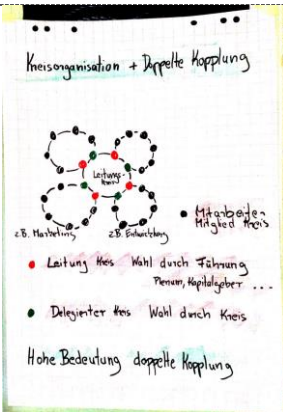 Kreisorganisation + Doppelte Kopplung
Leitungs-
kreis
z.B. Marketing
z.B. Entwicklung
Mitarbeiter
Mitglied Kreis
Leitung Kreis Wahl durch Führung
Plenum, Kapitalgeber ...
Delegierter Kreis Wahl durch Kreis
Hohe Bedeutung doppelte Kopplung